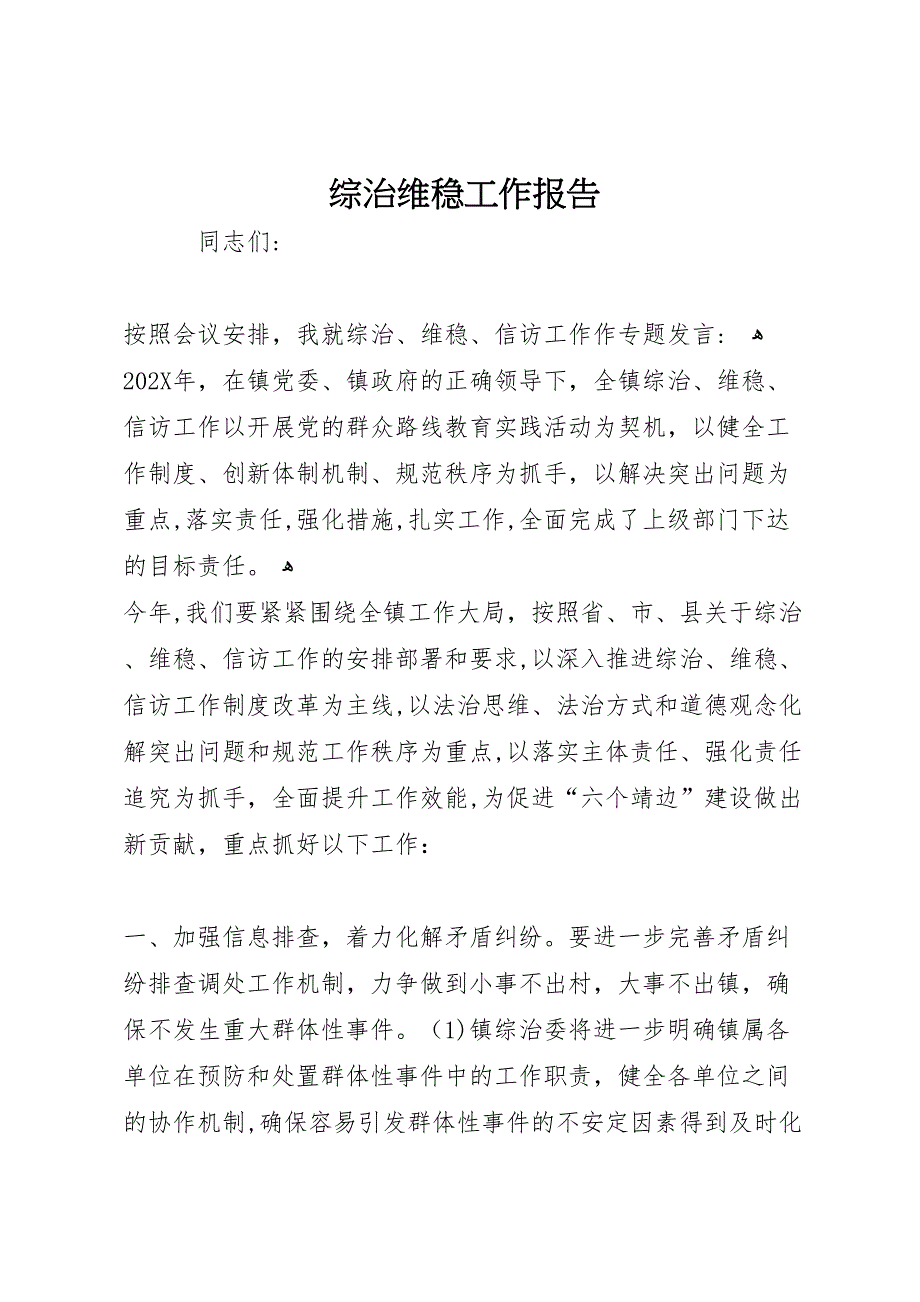 综治维稳工作报告
同志们:
按照会议安排，我就综治、维稳、信访工作作专题发言: ﻫ
202X年，在镇党委、镇政府的正确领导下，全镇综治、维稳、
信访工作以开展党的群众路线教育实践活动为契机，以健全工
作制度、创新体制机制、规范秩序为抓手，以解决突出问题为
重点,落实责任,强化措施,扎实工作,全面完成了上级部门下达
的目标责任。 ﻫ
今年,我们要紧紧围绕全镇工作大局，按照省、市、县关于综治
、维稳、信访工作的安排部署和要求,以深入推进综治、维稳、
信访工作制度改革为主线,以法治思维、法治方式和道德观念化
解突出问题和规范工作秩序为重点,以落实主体责任、强化责任
追究为抓手，全面提升工作效能,为促进“六个靖边”建设做出
新贡献，重点抓好以下工作：
一、加强信息排查，着力化解矛盾纠纷。要进一步完善矛盾纠
纷排查调处工作机制，力争做到小事不出村，大事不出镇，确
保不发生重大群体性事件。（1)镇综治委将进一步明确镇属各
单位在预防和处置群体性事件中的工作职责，健全各单位之间
的协作机制,确保容易引发群体性事件的不安定因素得到及时化